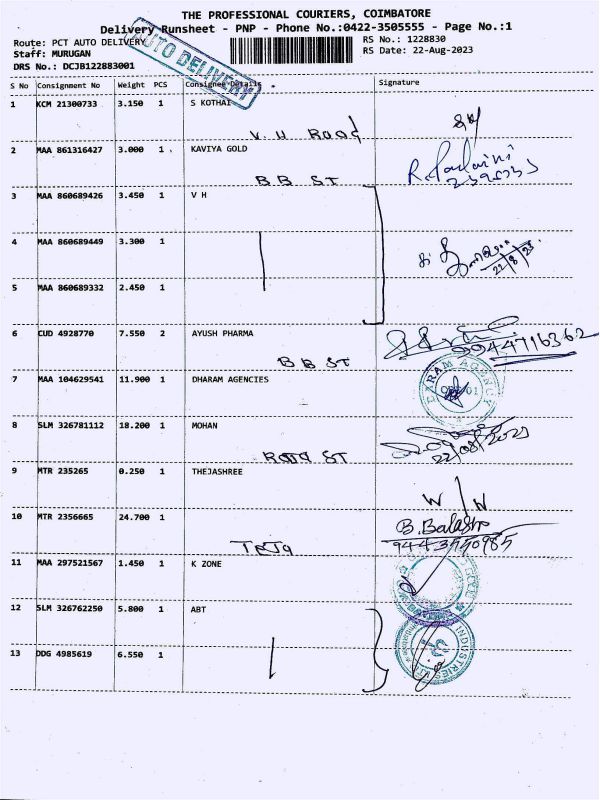 THE PROFESSIONAL COURIERS, COIMBATORE
Delivery Runsheet - PNP - Phone No.:0422-3505555 - Page No.:1
Route: PCT AUTO DELIVERY
RS No.: 1228830
Staff: MURUGAN
RS Date: 22-Aug-2023
DRS No.: DCJB122883001
AUTO DELIVERY
S No Consignment No Weight PCS Consignee Details Signature
1 KCM 21300733 3.150 1 S KOTHAI
V H Road
2 MAA 861316427 3.000 1 KAVIYA GOLD
B B ST
3 MAA 860689426 3.450 1 V H
4 MAA 860689449 3.300 1
22/8/23
5 MAA 860689332 2.450 1
6 CUD 4928770 7.550 2 AYUSH PHARMA
9944716362
B B ST
7 MAA 104629541 11.900 1 DHARAM AGENCIES
8 SLM 326781112 18.200 1 MOHAN
22/08/2023
Raja ST
9 MTR 235265 0.250 1 THEJASHREE
10 MTR 2356665 24.700 1
B. Balasho
9443550985
11 MAA 297521567 1.450 1 K ZONE
12 SLM 326762250 5.800 1 ABT
INDUSTRIES
13 DDG 4985619 6.550 1